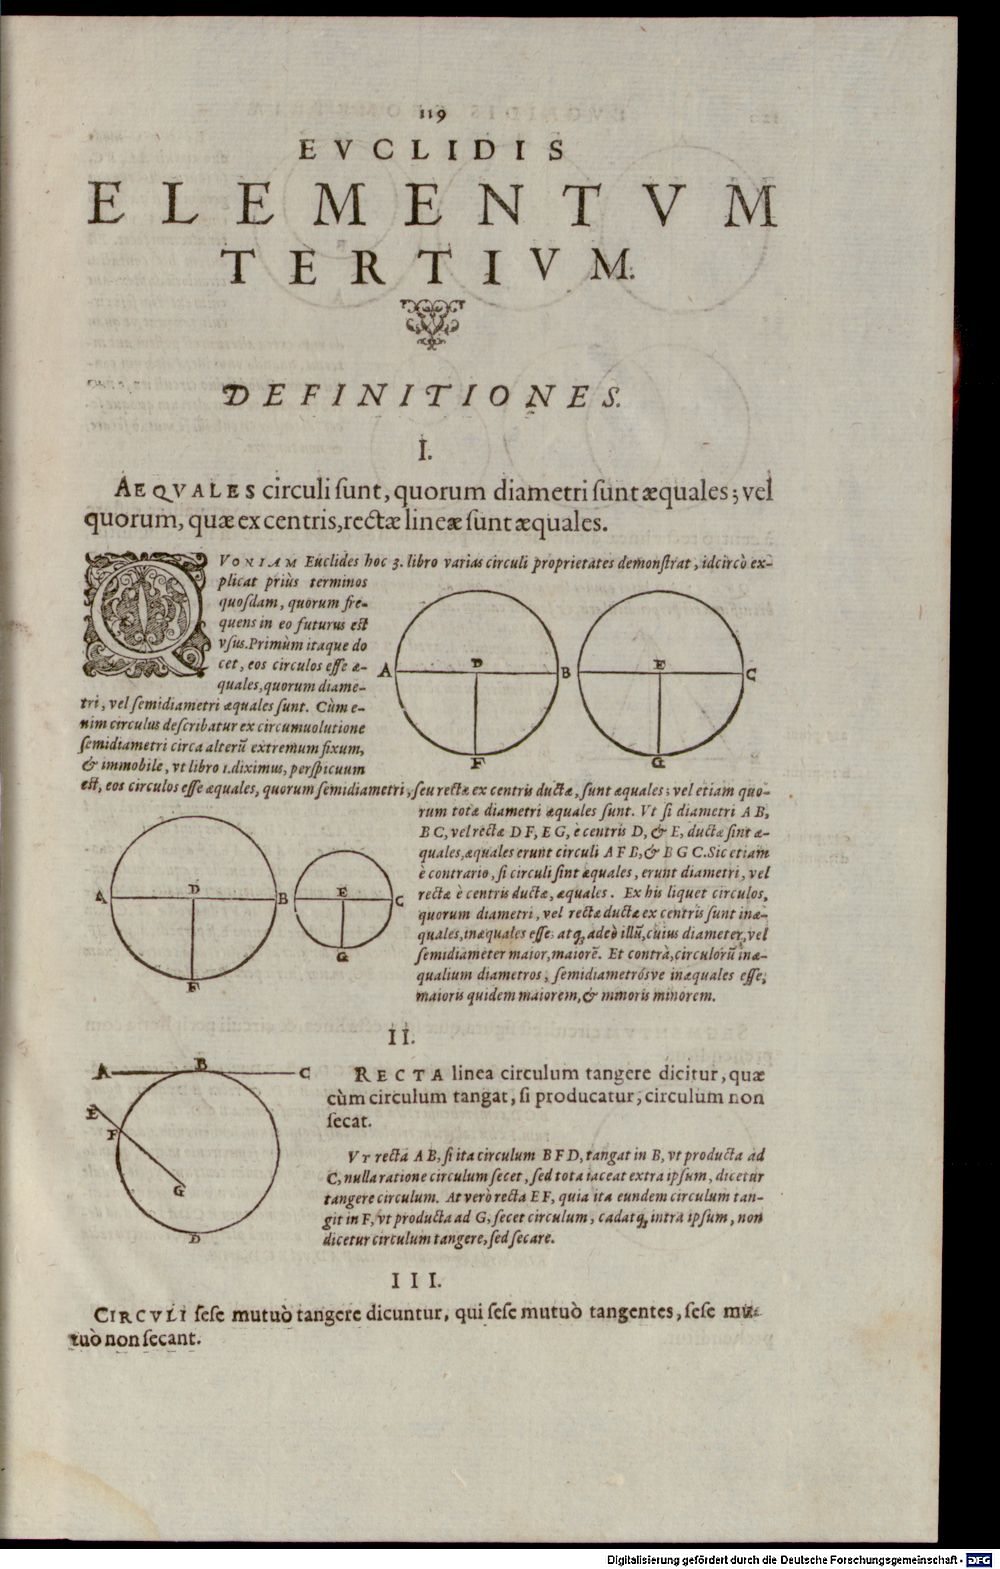 119
EVCLIDIS
ELEMENTVM
TERTIVM.
DEFINITIONES.
I.
AEQVALES circuli ſunt, quorum diametri ſunt æquales; vel
quorum, quæ ex centris, rectæ lineæ ſunt æquales.
QVONIAM Euclides hoc 3. libro varias circuli proprietates demonſtrat, idcircò ex-
plicat priùs terminos
quoſdam, quorum fre-
quens in eo futurus eſt
vſus. Primùm itaque do
cet, eos circulos eſſe æ-
quales, quorum diame-
tri, vel ſemidiametri æquales ſunt. Cùm e-
nim circulus deſcribatur ex circumuolutione
ſemidiametri circa alterũ extremum fixum,
& immobile, vt libro 1. diximus, perſpicuum
eſt, eos circulos eſſe æquales, quorum ſemidiametri, ſeu rectæ ex centris ductæ, ſunt æquales; vel etiam quo-
A D B E C
F G
rum totæ diametri æquales ſunt. Vt ſi diametri A B,
B C, vel rectæ D F, E G, è centris D, & E, ductæ ſint æ-
quales, æquales erunt circuli A F B, & B G C. Sic etiam
è contrario, ſi circuli ſint æquales, erunt diametri, vel
rectæ è centris ductæ, æquales. Ex his liquet circulos,
quorum diametri, vel rectæ ductæ ex centris ſunt inæ-
quales, inæquales eſſe: atq; adeò illũ, cuius diameter, vel
ſemidiameter maior, maiorẽ. Et contrà, circulorũ inæ-
qualium diametros, ſemidiametrósve inæquales eſſe;
maioris quidem maiorem, & minoris minorem.
A D B E C
F G
II.
RECTA linea circulum tangere dicitur, quæ
cùm circulum tangat, ſi producatur, circulum non
ſecat.
VT recta A B, ſi ita circulum B F D, tangat in B, vt producta ad
C, nulla ratione circulum ſecet, ſed tota iaceat extra ipſum, dicetur
tangere circulum. At verò recta E F, quia ita eundem circulum tan-
git in F, vt producta ad G, ſecet circulum, cadatq; intra ipſum, non
dicetur circulum tangere, ſed ſecare.
A B C
E
F
G
D
III.
CIRCVLI ſeſe mutuò tangere dicuntur, qui ſeſe mutuò tangentes, ſeſe mu-
tuò non ſecant.
Digitalisierung gefördert durch die Deutsche Forschungsgemeinschaft - DFG